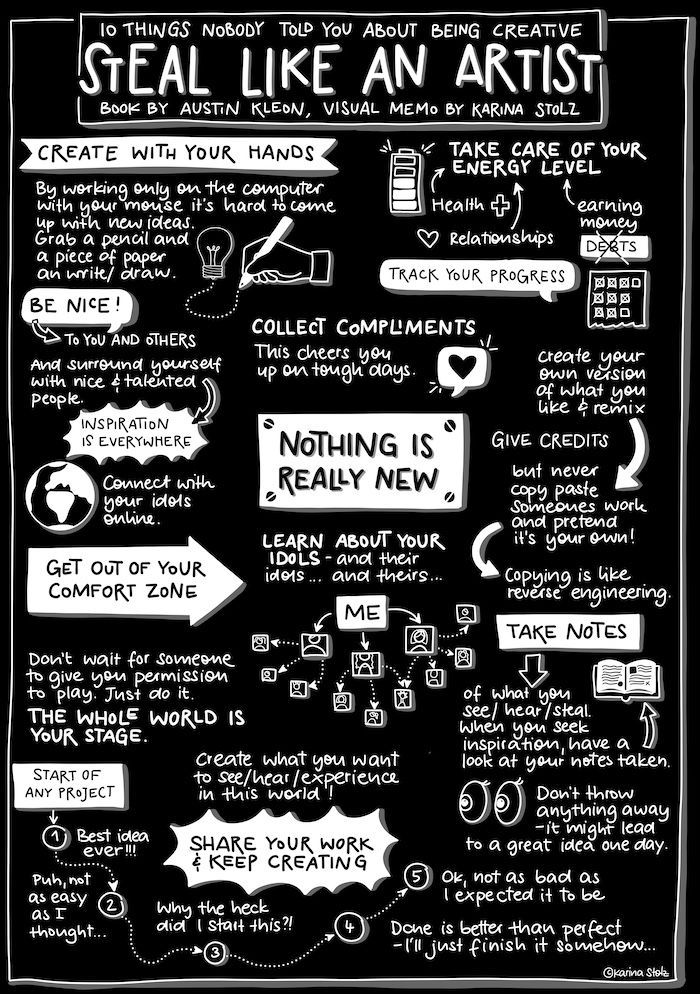 10 THINGS NOBODY TOLD YOU ABOUT BEING CREATIVE
STEAL LIKE AN ARTIST
BOOK BY AUSTIN KLEON, VISUAL MEMO BY KARINA STOLZ
CREATE WITH YOUR HANDS
By working only on the computer
with your mouse it's hard to come
up with new ideas.
Grab a pencil and
a piece of paper
an write/ draw.
TAKE CARE OF YOUR
ENERGY LEVEL
Health
Relationships
earning
money
DEBTS
TRACK YOUR PROGRESS
BE NICE!
TO YOU AND OTHERS
And surround yourself
with nice & talented
people.
INSPIRATION
IS EVERYWHERE
Connect with
your idols
online.
COLLECT COMPLIMENTS
This cheers you
up on tough days.
NOTHING IS
REALLY NEW
create your
own version
of what you
like & remix
GIVE CREDITS
but never
copy paste
someones work
and pretend
it's your own!
Copying is like
reverse engineering.
GET OUT OF YOUR
COMFORT ZONE
LEARN ABOUT YOUR
IDOLS - and their
idols ... and theirs...
ME
TAKE NOTES
of what you
see/ hear/steal.
When you seek
inspiration, have a
look at your notes taken.
Don't throw
anything away
-it might lead
to a great idea one day.
Don't wait for someone
to give you permission
to play. Just do it.
THE WHOLE WORLD IS
YOUR STAGE.
Create what you want
to see/hear/experience
in this world!
START OF
ANY PROJECT
SHARE YOUR WORK
& KEEP CREATING
1 Best idea
ever!!!
Puh, not
as easy
as I
thought...
2
Why the heck
did I start this?!
3
4
Done is better than perfect
-I'll just finish it somehow...
5 Ok, not as bad as
I expected it to be
©Karina Stolz